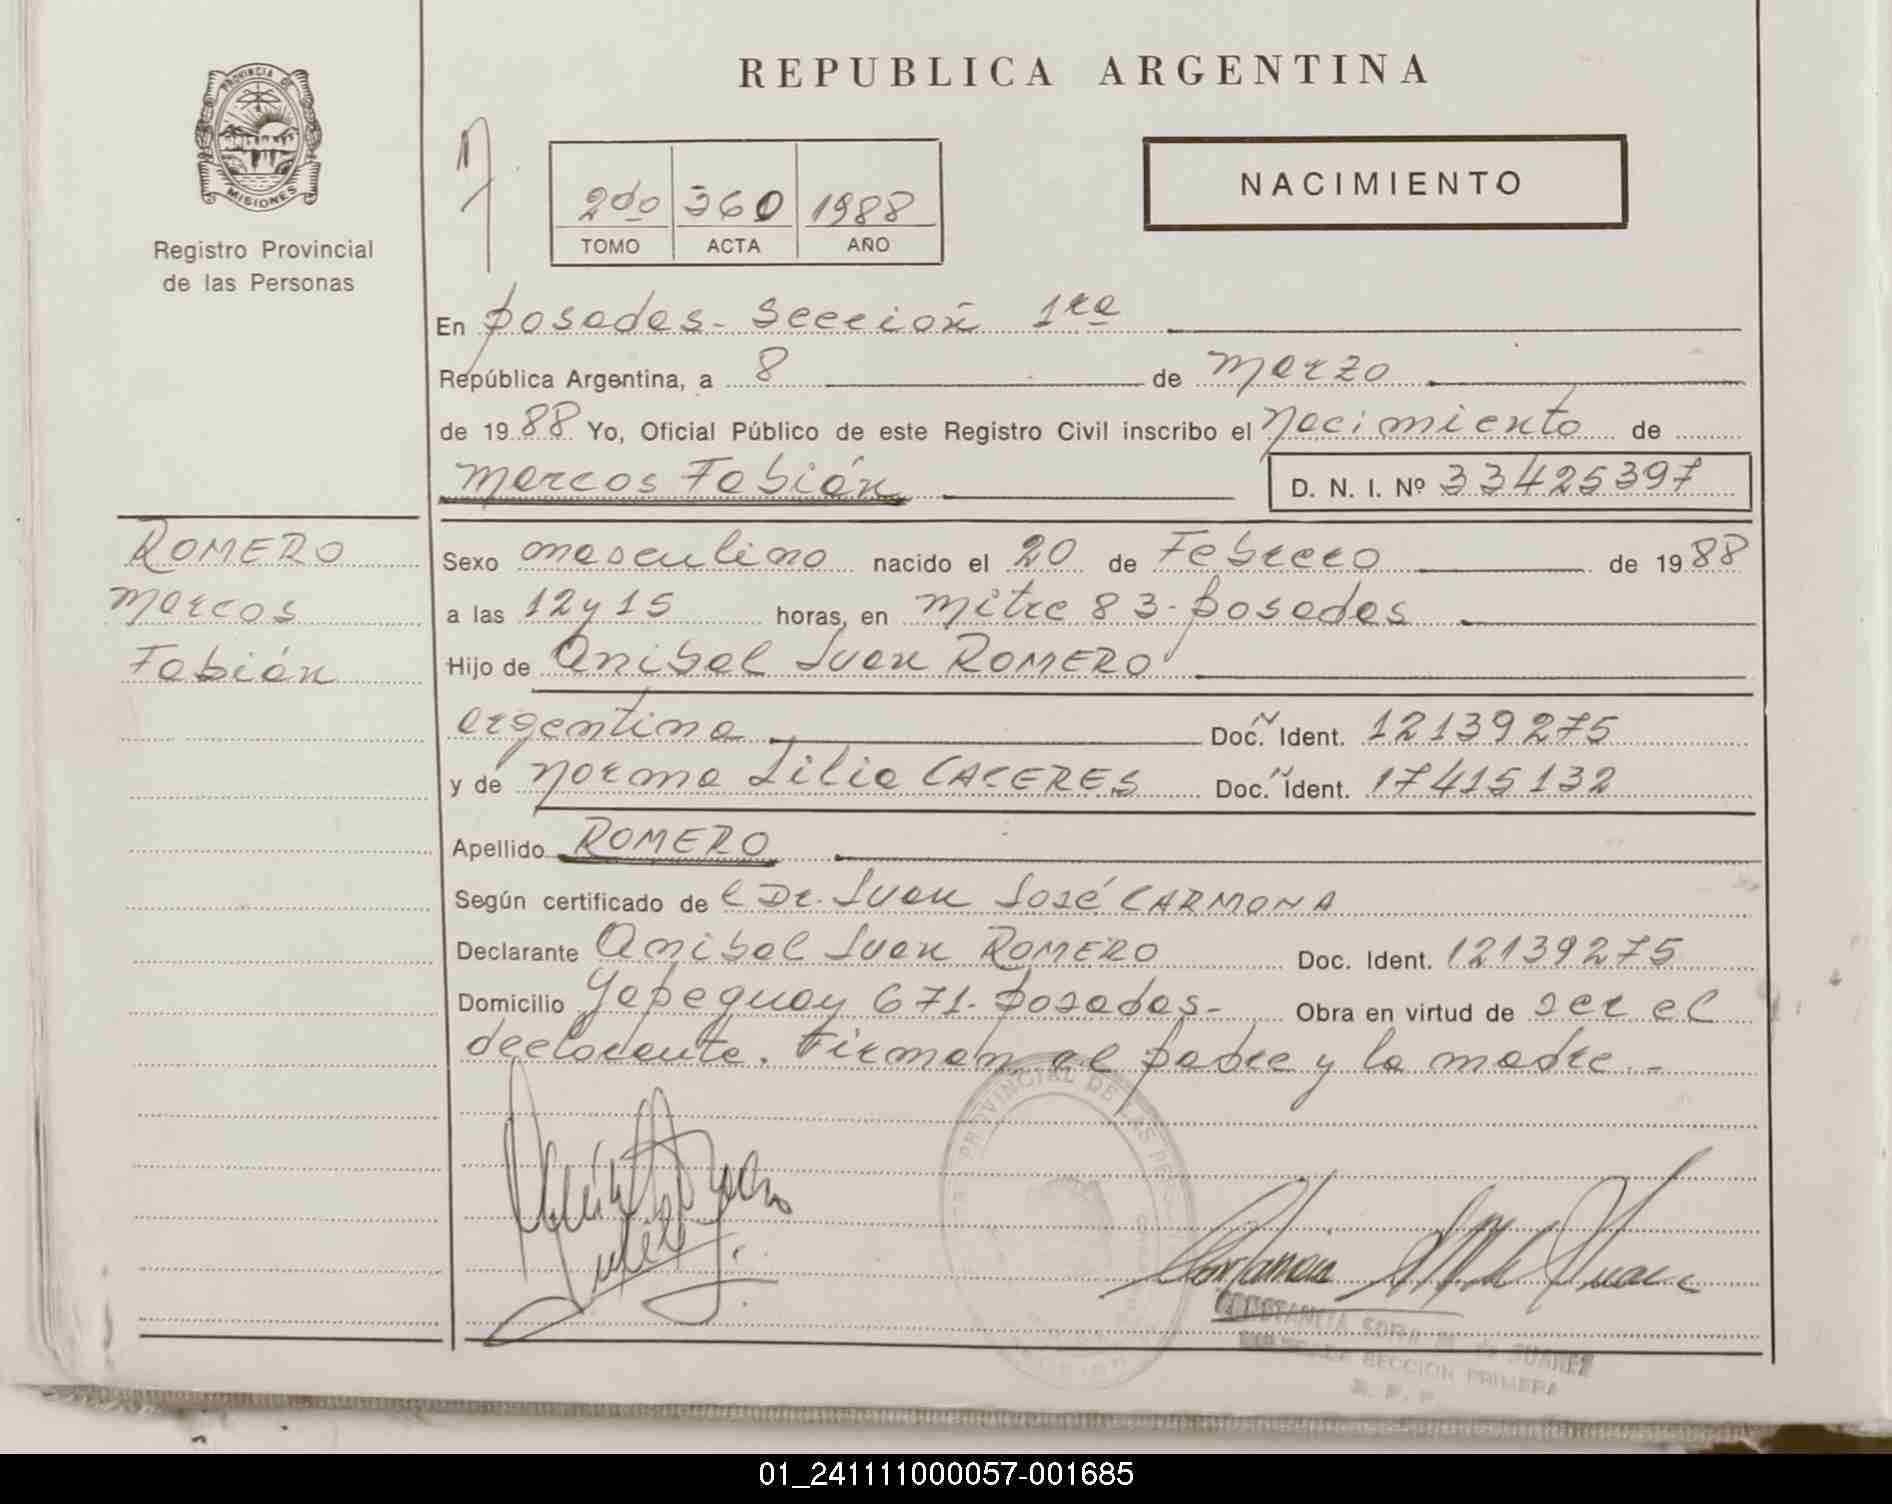 REPUBLICA ARGENTINA
PROVINCIA DE
MISIONES
Registro Provincial
de las Personas
2do 360 1988
TOMO ACTA AÑO
NACIMIENTO
En Posadas - Sección 1ra
República Argentina, a 8 de Marzo
de 1988 Yo, Oficial Público de este Registro Civil inscribo el Nacimiento de
Marcos Fabián D. N. I. Nº 33425397
ROMERO
Marcos
Fabián
Sexo masculino nacido el 20 de Febrero de 1988
a las 12 y 15 horas, en Mitre 83 - Posadas
Hijo de Anibal Juan ROMERO
argentina Doc. Ident. 12139275
y de Norma Lilia CACERES Doc. Ident. 17415132
Apellido ROMERO
Según certificado de l Dr. Juan José CARMONA
Declarante Anibal Juan ROMERO Doc. Ident. 12139275
Domicilio Yapeguay 671 - Posadas - Obra en virtud de ser el
declarante. Firman el padre y la madre. -
PROVINCIAL DE LAS
CONSTANCIA SOFIA M. de SUAREZ
SECCION PRIMERA
R. P. P.
01_241111000057-001685